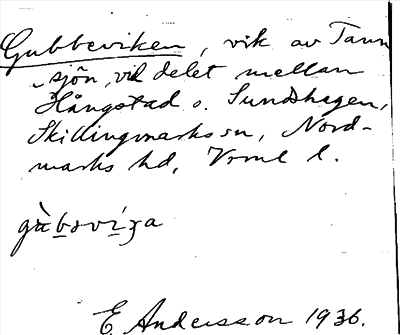 Gubbeviken, vik av Tann
sjön, vid delet mellan
Hångstad o. Sundhagen,
Skillingmarks sn, Nord-
marks hd, Vrml l.
E. Andersson 1936.